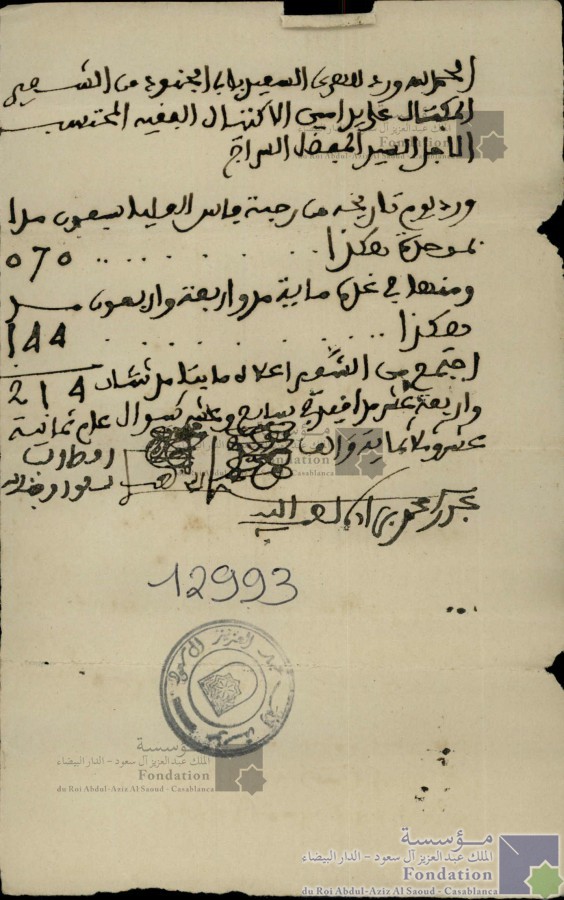 الحمد لله ورد للهري السعيد بباب المخزون من الشعير
المكتال على يد امين الاكتيال الفقيه المحتسب
الاجل السيد المفضل السراج
ورد يوم تاريخه من رحبة فاس العليا سبعون مدا
بموحدة هكذا .......... 070
ومنها في غده ماية مد واربعة واربعون مد
هكذا .......... 144
اجتمع من الشعير اعلاه مايتا مد ثنتان 214
واربعة عشر مدا فيه سابع وعشر شوال عام ثمانية
عشر وثلاثماية والف
12993
مؤسسة
الملك عبد العزيز آل سعود - الدار البيضاء
Fondation
du Roi Abdul-Aziz Al Saoud - Casablanca
مؤسسة
الملك عبد العزيز آل سعود - الدار البيضاء
Fondation
du Roi Abdul-Aziz Al Saoud - Casablanca